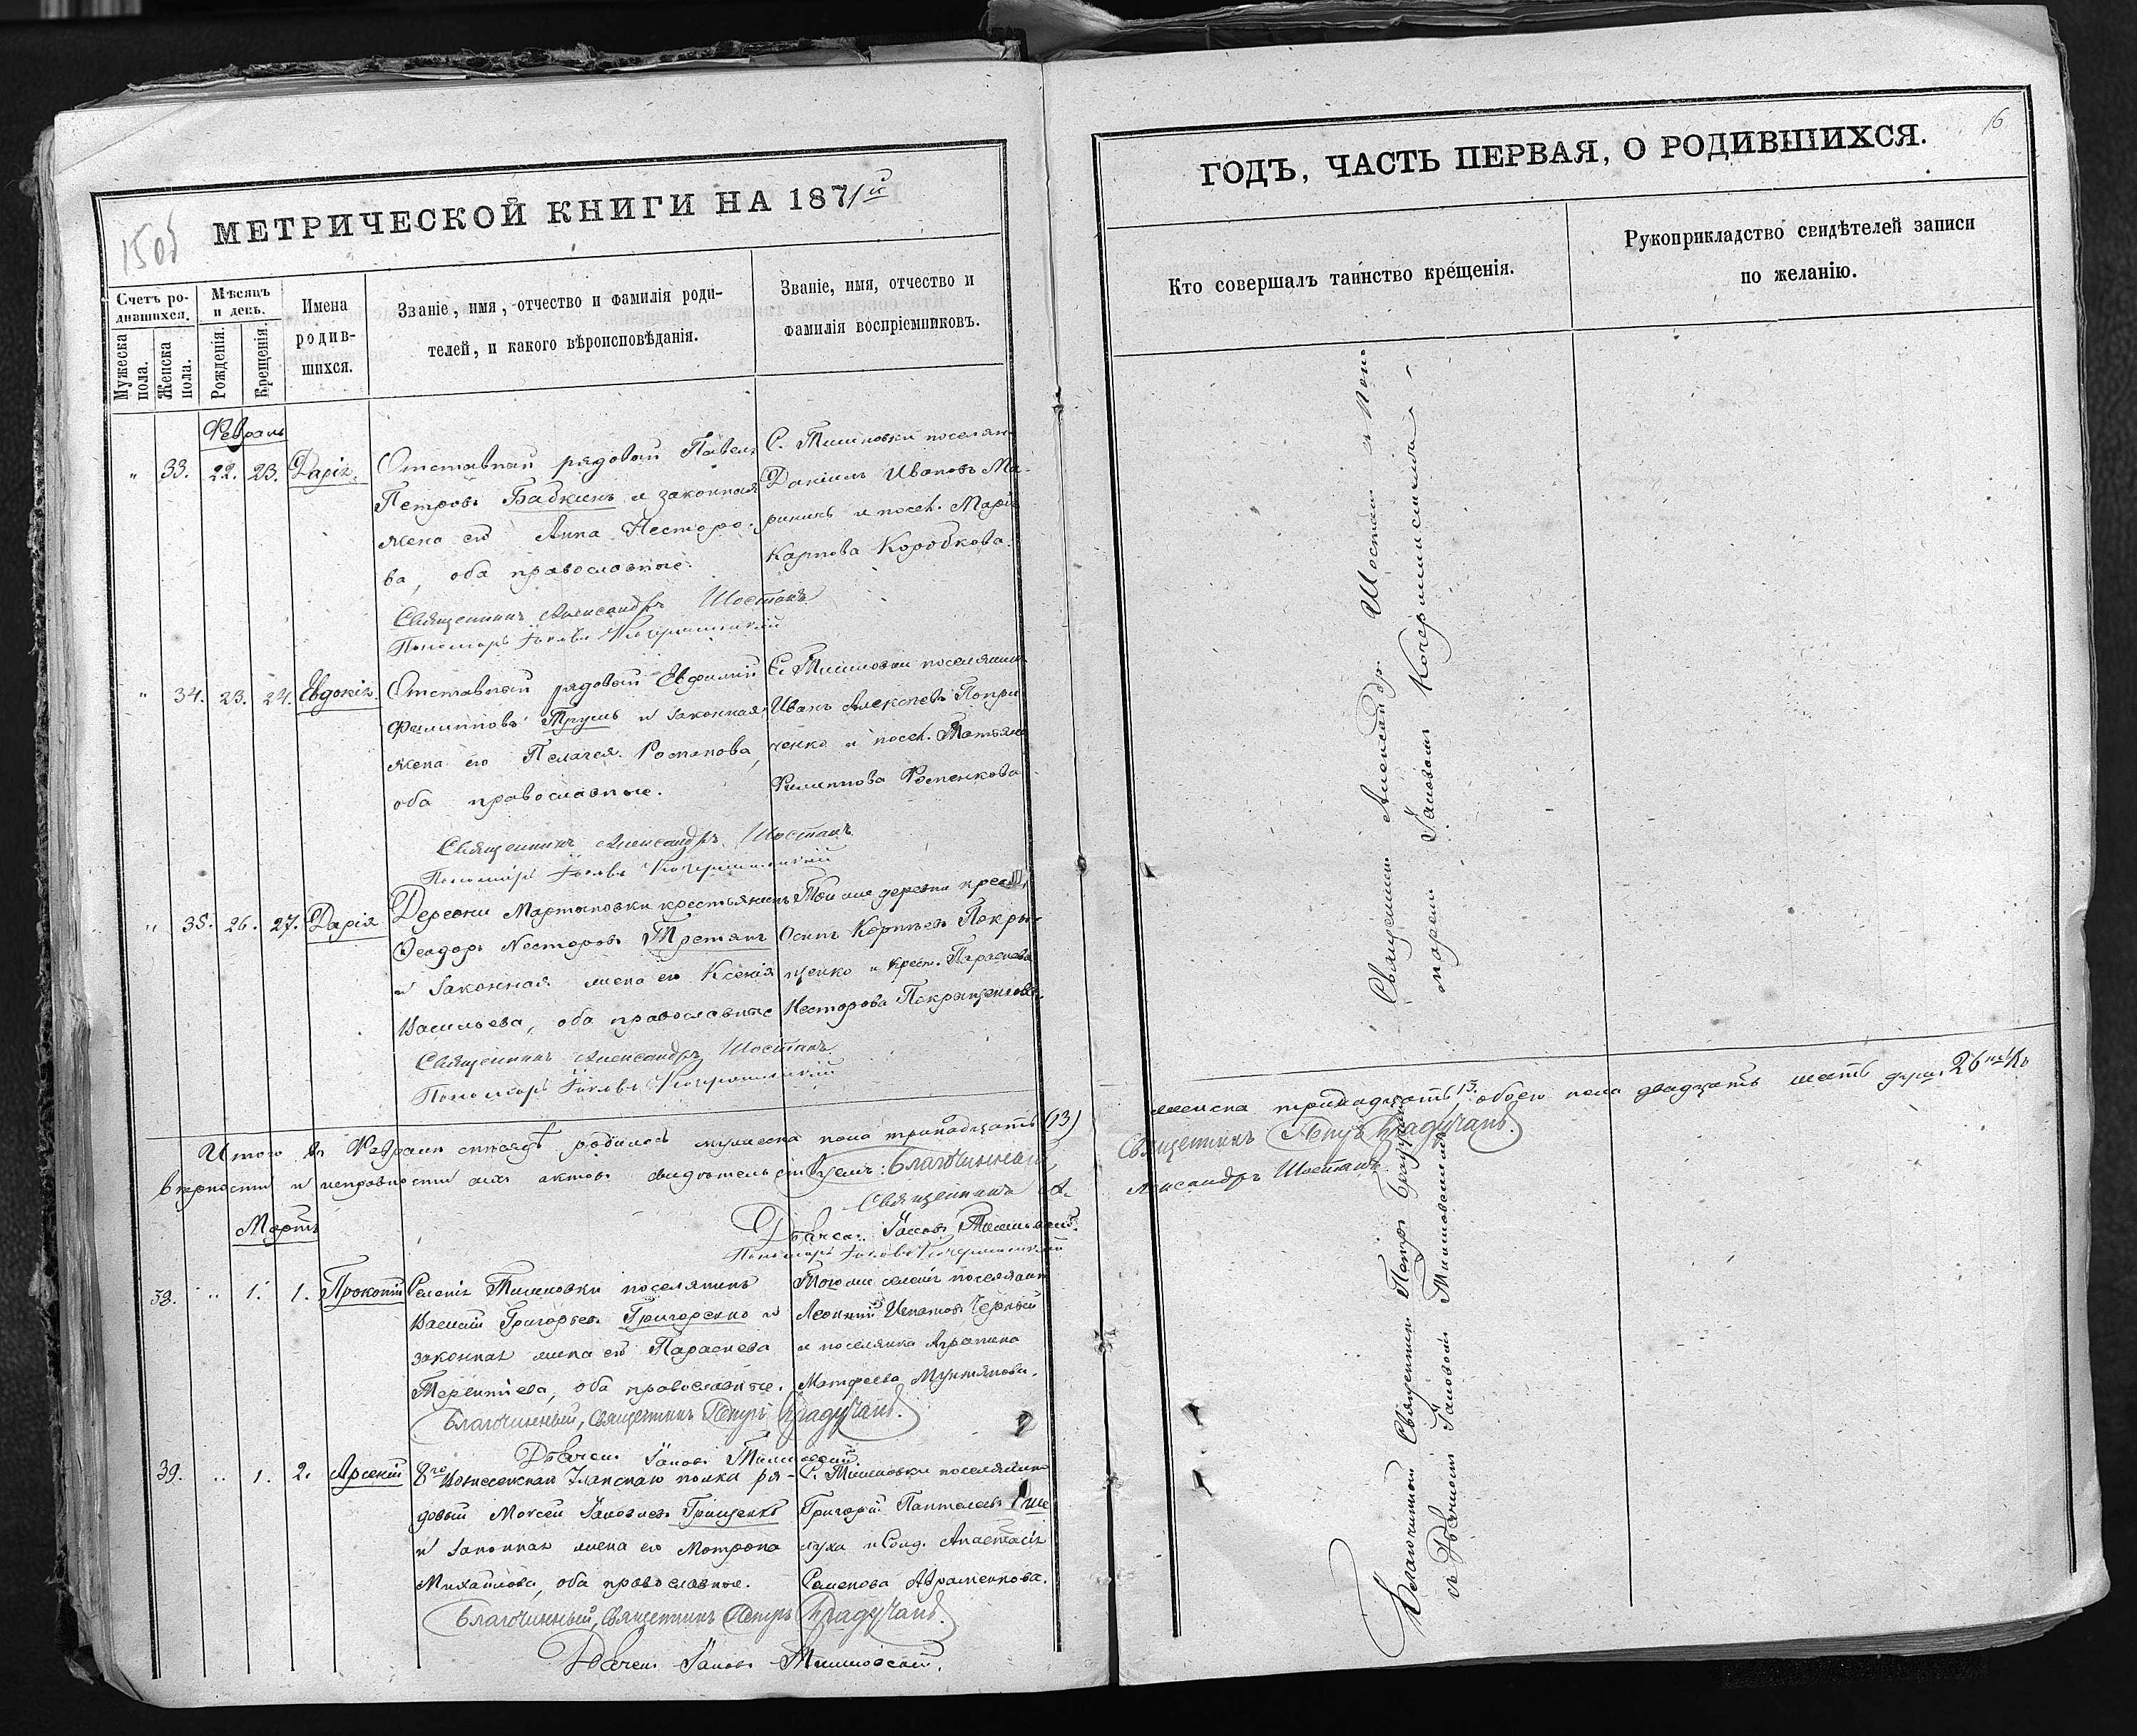 МЕТРИЧЕСКОЙ КНИГИ НА 1871й
150б
Счетъ родившихся.
Мужеска пола.
Женска пола.
Мѣсяцъ и день.
Рожденія.
Крещенія.
Имена родившихся.
Званіе, имя, отчество и фамилія родителей, и какого вѣроисповѣданія.
Званіе, имя, отчество и фамилія воспріемниковъ.
Февраль
" 33. 22. 23. Дарія.
Отставной рядовой Павелъ
Петровъ Бабкинъ и законная
жена его Анна Несторо-
ва, оба православные.
С. Тишковки поселян
Даніилъ Ивановъ Ма-
риничъ и посел. Марія
Карпова Коробкова.
Священникъ Александръ Шостакъ
Пономарь Іаковъ
" 34. 23. 24. Евдокія.
Отставной рядовой Евфимій
Филипповъ и законная
жена его Пелагея Потапова,
оба православные.
С. Тишковки поселянинъ
Иванъ Алексѣевъ Попри
ченко и посел. Татьяна
Филиппова
Священникъ Александръ Шостакъ
Пономарь Іаковъ
" 35. 26. 27. Дарія
Деревни Мартыновки крестьянинъ
Ѳеодоръ Несторовъ Третякъ
и законная жена его Ксенія
Васильева, оба православные
Той же деревни крест.
Осипъ Корнѣевъ Покры-
щенко и крест. Параскева
Несторова
Священникъ Александръ Шостакъ
Пономарь Іаковъ
Итого въ Февралѣ мѣсяцѣ родилось мужеска пола тринадцать (13)
вѣрности и исправности сихъ актовъ свидѣтельствуемъ: Благочинный,
Священникъ А-
Дьячекъ Іаковъ Тишковскій.
Пономарь Іаковъ
Мартъ
38. " 1. 1. Прокопій
Селенія Тишковки поселянинъ
Василій Григорьевъ Григоренко и
законная жена его Параскева
Терентіева, оба православные.
Того же селенія поселянинъ
Леонтій Игнатовъ Черный
и поселянка Агрипина
Матфеева Мунтянова.
Благочинный, Священникъ Петръ Брадучанъ.
Дьячекъ Іаковъ Тишковскій.
39. " 1. 2. Арсеній
8го Вознесенскаго Уланскаго полка ря-
довый Моисей Іаковлевъ Грищенко
и законная жена его Мотрона
Михайлова, оба православные.
С. Тишковки поселянинъ
Григорій Пантелеевъ
и Солд. Анастасія
Семенова Авраменкова.
Благочинный, Священникъ Петръ Брадучанъ.
Дьячекъ Іаковъ Тишковскій.
16
ГОДЪ, ЧАСТЬ ПЕРВАЯ, О РОДИВШИХСЯ.
Кто совершалъ таинство крещенія.
Рукоприкладство свидѣтелей записи по желанію.
Священникъ Александръ Шостакъ и Поно-
марем Іаковомъ
женска тринадцать 13. обоего пола двадцать шесть душъ 26 Въ
Священникъ Петръ Брадучанъ.
лександръ Шостакъ
Благочинный Священникъ Петръ Брадучанъ
съ Дьячкомъ Іаковомъ Тишковскимъ